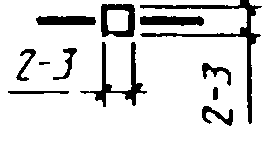 2-3
2-3